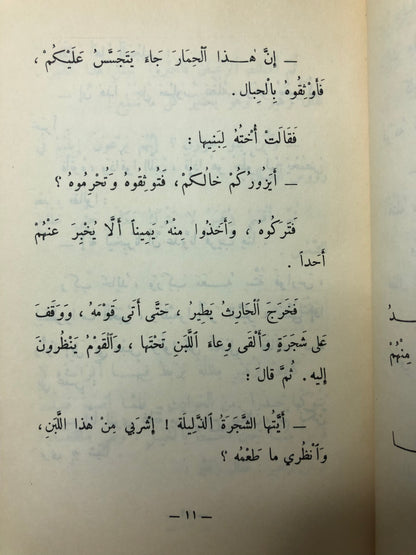 ــ إِنَّ هٰـذا اَلْحِمَارَ جَاءَ يَتَجَسَّسُ عَلَيْكُمْ ،
فَأَوْثِقُوهُ بِالْحِبال .
فَقَالَتْ أُخْتُهُ لِبَنِيها :
ــ أَيَزُورُكُمْ خَالُكُمْ ، فَتُوثِقُوهُ وَتُحْرِموهُ ؟
فَتَرَكُوهُ ، وَأَخَذُوا مِنْهُ يَمِيناً أَلَّا يُخْبِرَ عَنْهُمْ
أَحَداً .
فَخَرَجَ اَلْحَارِثُ يَطِيرُ ، حَتَّى أَتَى قَوْمَهُ ، وَوَقَفَ
عَلَى شَجَرَةٍ وَأَلْقَى وِعاءَ اللَّبَنِ تَحْتَها ، وَاَلْقَوْمُ يَنْظُرونَ
إليه . ثُمَّ قالَ :
ــ أَيَّتُها الشَّجَرَةُ الذَّلِيلَة ! اِشْرَبي مِنْ هٰذا اللَّبَنِ ،
وَاَنْظُري ما طَعْمُه ؟
ــ ١١ ــ